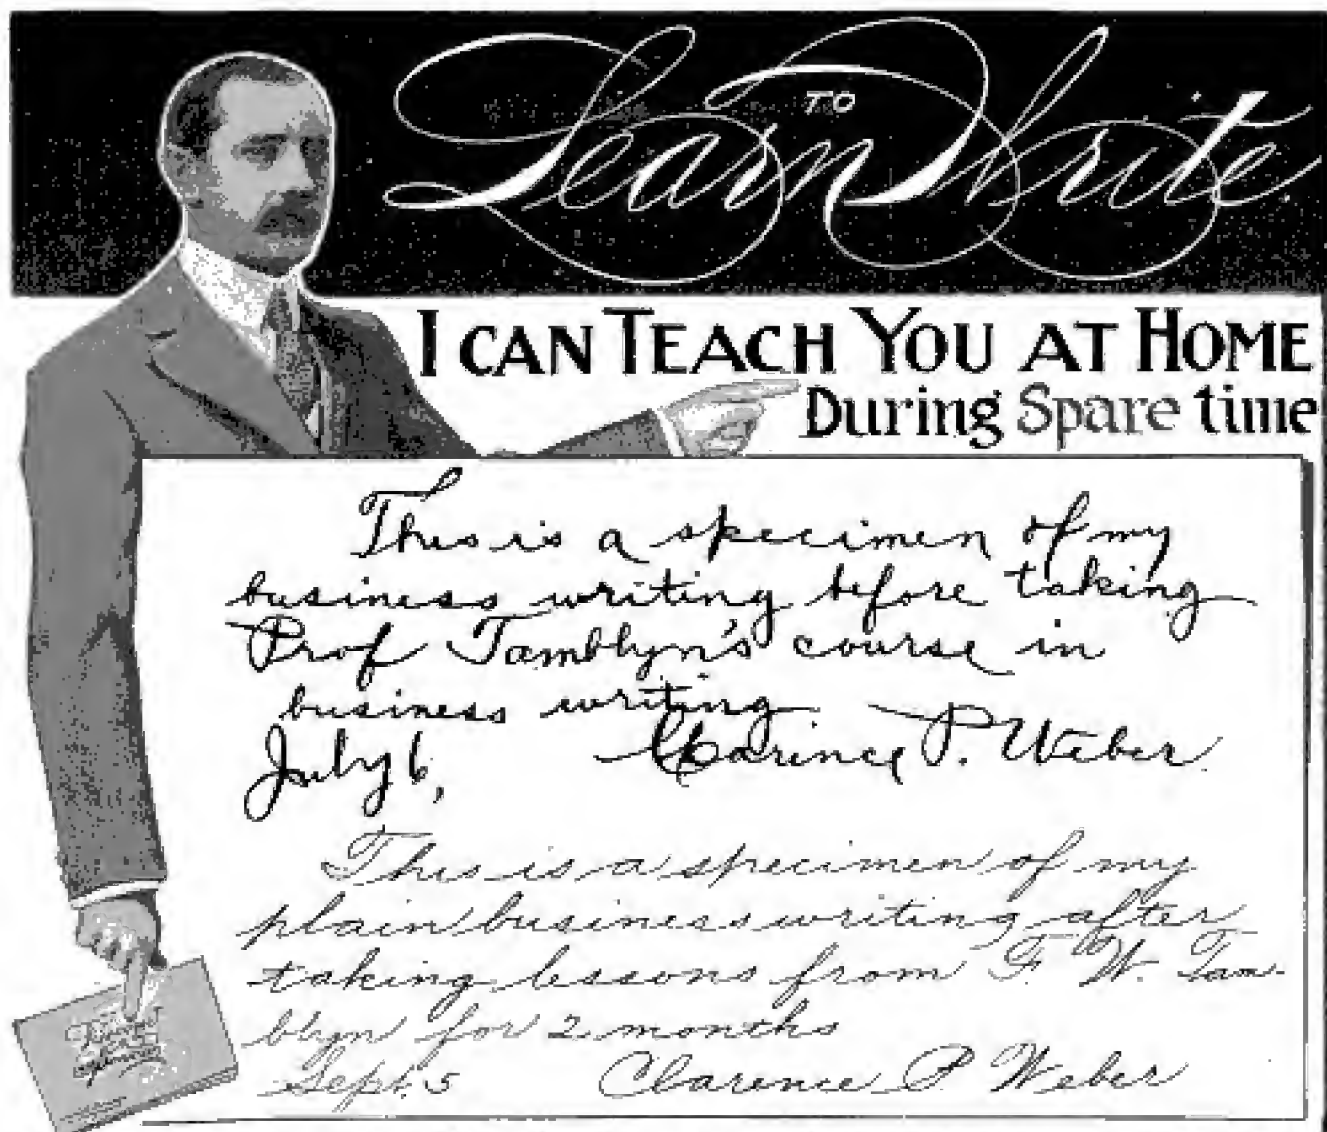 Learn to Write
I CAN TEACH YOU AT HOME
During Spare time
This is a specimen of my
business writing before taking
Prof Tamblyn's course in
business writing.
July 6, Clarence P. Weber.
This is a specimen of my
plain business writing after
taking lessons from F. W. Tam-
blyn for 2 months
Sept. 5 Clarence P Weber